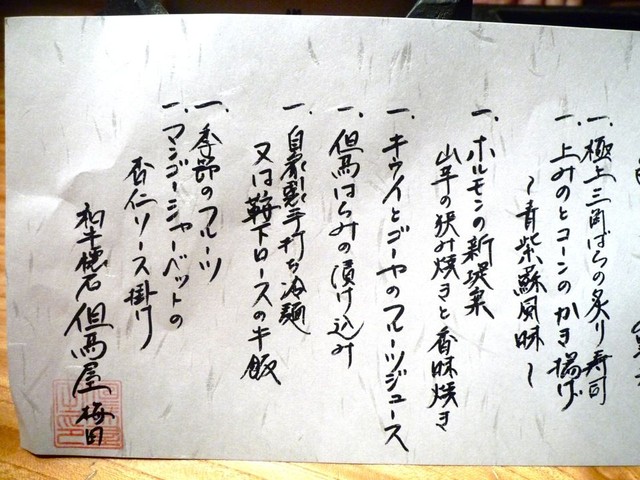 一、極上三角ばらの炙り寿司
一、上みのとコーンのかき揚げ
〜青紫蘇風味〜
一、ホルモンの新提案
山芋の挟み焼きと香味焼き
一、キウイとゴーヤのフルーツジュース
一、但馬はらみの漬け込み
一、自家製手打ち冷麺
又は鞍下ロースの牛飯
一、季節のフルーツ
一、マンゴーシャーベットの
杏仁ソース掛け
和牛懐石 但馬屋 梅田